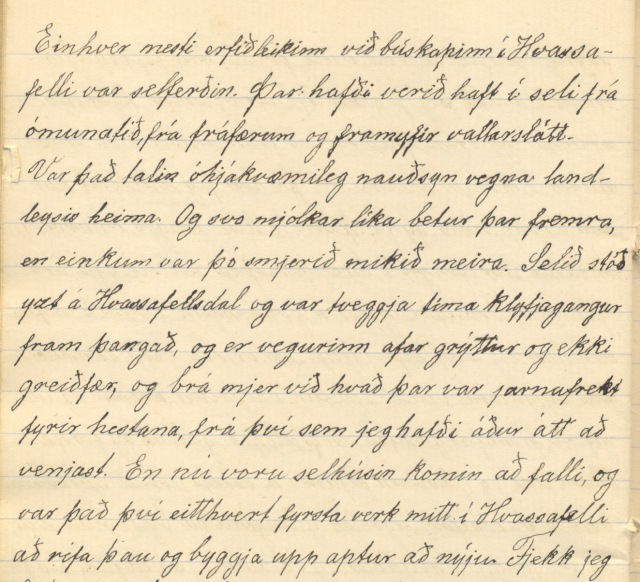 Einhver mesti erfiðleikinn við búskapinn í Hvassa-
felli var selferðin. Þar hafði verið haft í seli frá
ómunatíð, frá fráfærum og framyfir vallarslátt.
Var það talin óhjákvæmileg nauðsyn vegna land-
leysis heima. Og svo mjólkar líka betur þar fremra,
en einkum var þó smjerið mikið meira. Selið stóð
yzt á Hvassafellsdal og var tveggja tíma klyfjagangur
fram þangað, og er vegurinn afar grýttur og ekki
greiðfær, og brá mjer við hvað þar var járnafrekt
fyrir hestana, frá því sem jeg hafði áður átt að
venjast. En nú voru selhúsin komin að falli, og
var það því eitthvert fyrsta verk mitt í Hvassafelli
að rífa þau og byggja upp aptur að nýju. Fjekk jeg